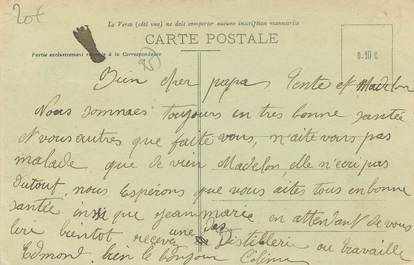 20f
Le Verso (côté vue) ne doit comporter aucune inscription manuscrite
CARTE POSTALE
Partie exclusivement réservée à la Correspondance
0.10 €
Bien cher papa, tente et Madelon
Nous sommes toujours en tres bonne santée
et vous autres que faite vous, n'aite vous pas
malade que de vien Madelon, elle n'ecri pas
dutout, nous Espérons que vous aites tous en bonne
santée insi que jean marie en attendant de vous
lire bientot recevez une Distillerie ou travaille
Edmond. bien le bonjour Céline